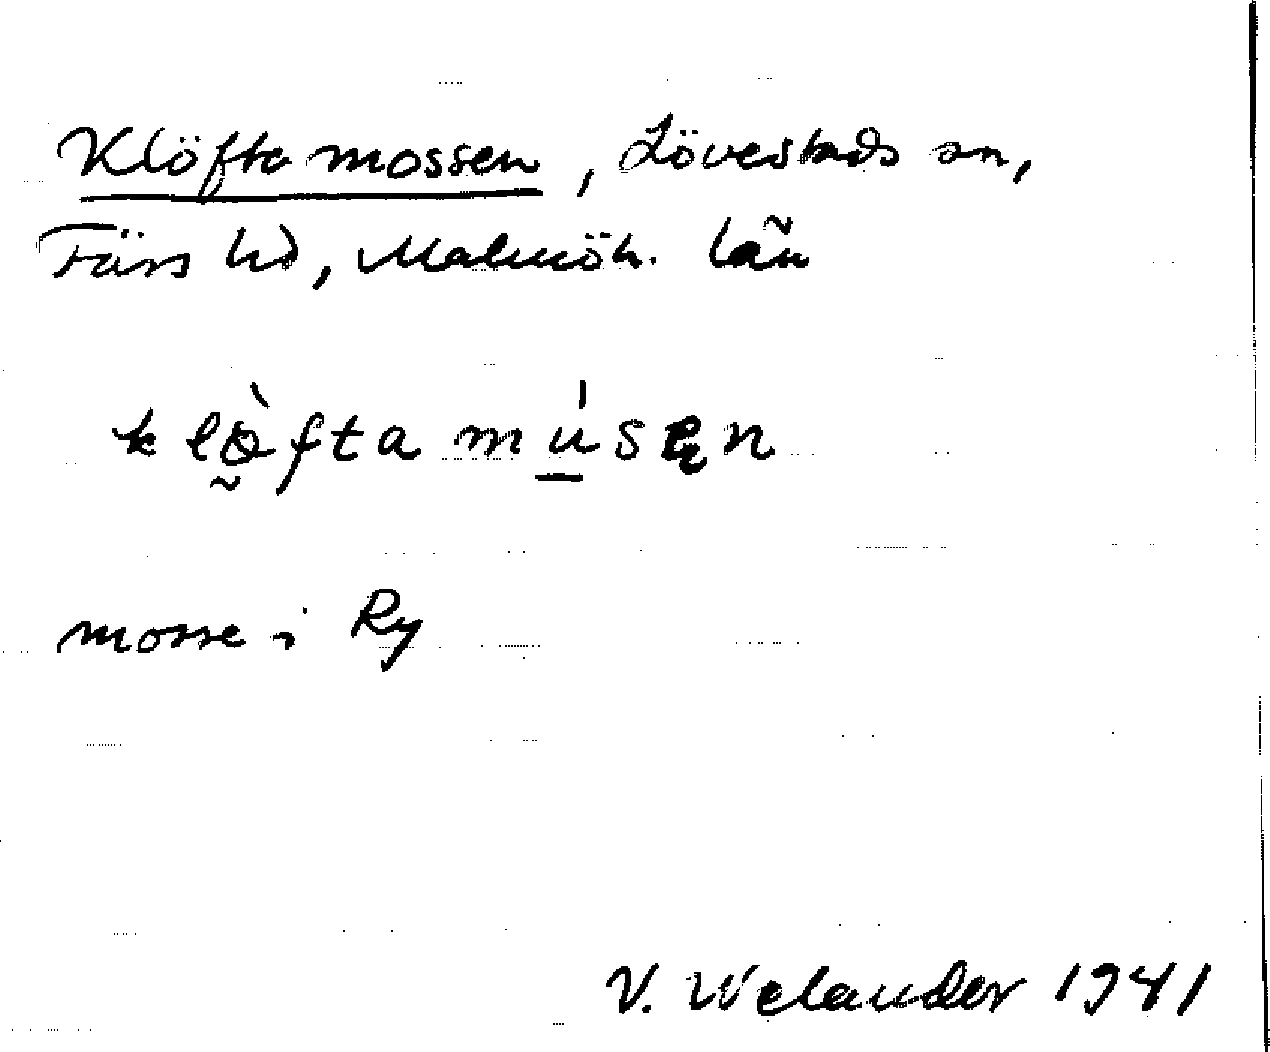 Klöftamossen, Lövestads sn,
Färs hd, Malmöh. län
klø̰̀ftamú̱sęn
mosse i Ry
V. Welander 1941